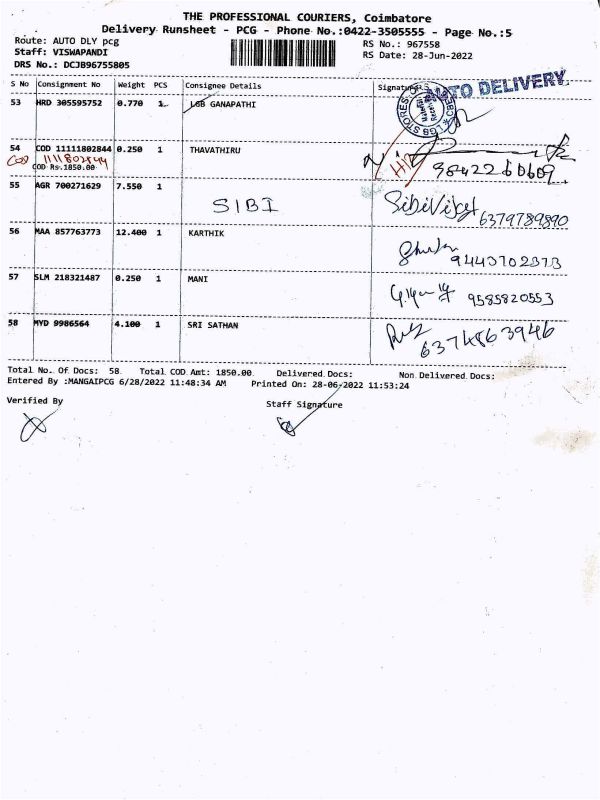 THE PROFESSIONAL COURIERS, Coimbatore
Delivery Runsheet - PCG - Phone No.:0422-3505555 - Page No.:5
Route: AUTO DLY pcg
Staff: VISWAPANDI
DRS No.: DCJB96755805
RS No.: 967558
RS Date: 28-Jun-2022
S No Consignment No Weight PCS Consignee Details Signature
AUTO DELIVERY
53 HRD 305595752 0.770 1 LGB GANAPATHI
54 COD 11111802844 0.250 1 THAVATHIRU
COD 1111802844
COD Rs.1850.00
9842260609
55 AGR 700271629 7.550 1 SIBI
6379789890
56 MAA 857763773 12.400 1 KARTHIK
9443702373
57 SLM 218321487 0.250 1 MANI
9585820553
58 MYD 9986564 4.100 1 SRI SATHAN
6374863946
Total No. Of Docs: 58 Total COD Amt: 1850.00 Delivered Docs: Non Delivered Docs:
Entered By :MANGAIPCG 6/28/2022 11:48:34 AM Printed On: 28-06-2022 11:53:24
Verified By Staff Signature